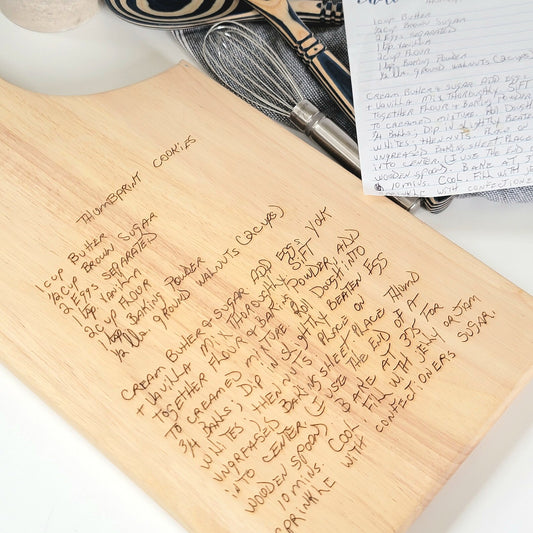 THUMBPRINT COOKIES
1 CUP BUTTER
1/2 CUP BROWN SUGAR
2 EGGS SEPARATED
1 tsp VANILLA
2 CUP FLOUR
1 tsp BAKING POWDER
1/2 lb. GROUND WALNUTS (2 CUPS)
CREAM BUTTER & SUGAR ADD EGG YOLK
+ VANILLA MIX THOROUGHLY SIFT
TOGETHER FLOUR & BAKING POWDER AND
TO CREAMED MIXTURE. ROLL DOUGH INTO
3/4 BALLS, DIP IN SLIGHTLY BEATEN EGG
WHITES, THEN NUTS PLACE ON
UNGREASED BAKING SHEET PLACE THUMB
INTO CENTER (I USE THE END OF A
WOODEN SPOON) BAKE AT 375 FOR
10 MINS. COOL FILL WITH JELLY OR JAM
SPRINKLE WITH CONFECTIONERS SUGAR.
1 CUP BUTTER
1/2 CUP BROWN SUGAR
2 EGGS SEPARATED
1 tsp VANILLA
2 CUP FLOUR
1 tsp BAKING POWDER
1/2 lb. GROUND WALNUTS (2 CUPS)
CREAM BUTTER & SUGAR ADD EGG
+ VANILLA MIX THOROUGHLY SIFT
TOGETHER FLOUR & BAKING POWDER
TO CREAMED MIXTURE. ROLL DOUGH
3/4 BALLS, DIP IN SLIGHTLY BEATEN
WHITES, THEN NUTS PLACE ON
UNGREASED BAKING SHEET PLACE
INTO CENTER (I USE THE END
WOODEN SPOON) BAKE AT
10 MINS. COOL FILL WITH
SPRINKLE WITH CONFECTIONE